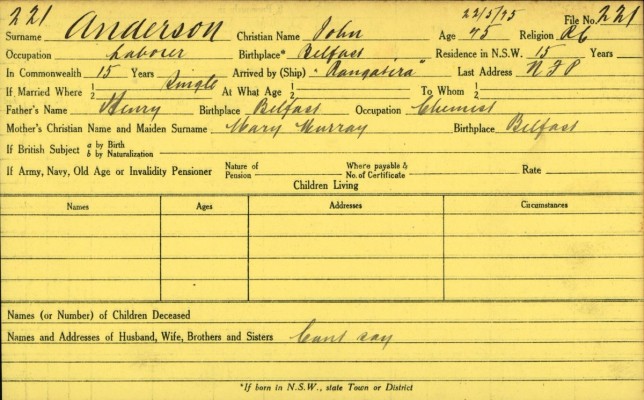 221 22/5/75 File No. 221
Surname Anderson Christian Name John Age 75 Religion RC
Occupation Laborer Birthplace* Belfast Residence in N.S.W. 15 Years
In Commonwealth 15 Years Arrived by (Ship) "Rangatira" Last Address N F P
If Married Where 1 2 Single At What Age 1 2 To Whom 1 2
Father's Name Henry Birthplace Belfast Occupation Chemist
Mother's Christian Name and Maiden Surname Mary Murray Birthplace Belfast
If British Subject a by Birth b by Naturalization
If Army, Navy, Old Age or Invalidity Pensioner Nature of Pension Where payable & No. of Certificate Rate
Children Living
Names Ages Addresses Circumstances
Names (or Number) of Children Deceased
Names and Addresses of Husband, Wife, Brothers and Sisters Cant say
*If born in N.S.W., state Town or District